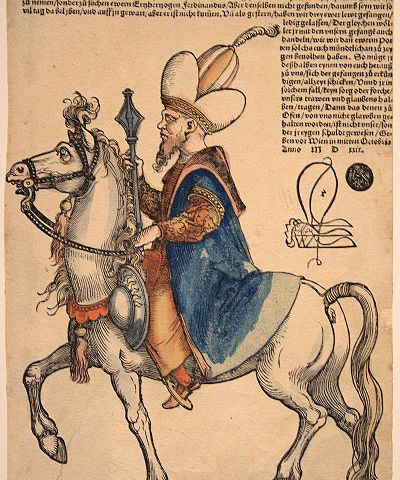 zu nemen/sonder zu suchen ewern Ertzhertzogen Ferdinandus. Aber denselben nicht gefunden/darumb seyn wir so
vil tag da belyben/vnd auff jn gewart/aber er ist nicht kumen. Vñ als gestern/haben wir drey ewer leut gefangen/
ledig gelassen/ Der gleychen söl=
let jr mit den vnsern gefangē auch
handeln/wie wir dan ewerm Poten
solchs euch mündtlich an zu zey=
gen bevolhen haben. So mügt jr
deßhalben eynen von euch herauß
zu vns/sich der gefangen zu erkün
digen/allzeyt schicken/Vnnd jr in
solchem fall/keyn sorg oder forcht/
vnsers trawen vnd glaubens hal=
ben/tragen/ Dann das denen zu
Ofen/von vns nicht glawben ge=
halten worden/ist nicht vnser/son=
der jr eygen schuldt gewesen/ Ge=
ben vor Wien in mitten Octobris
Anno M D xxix.